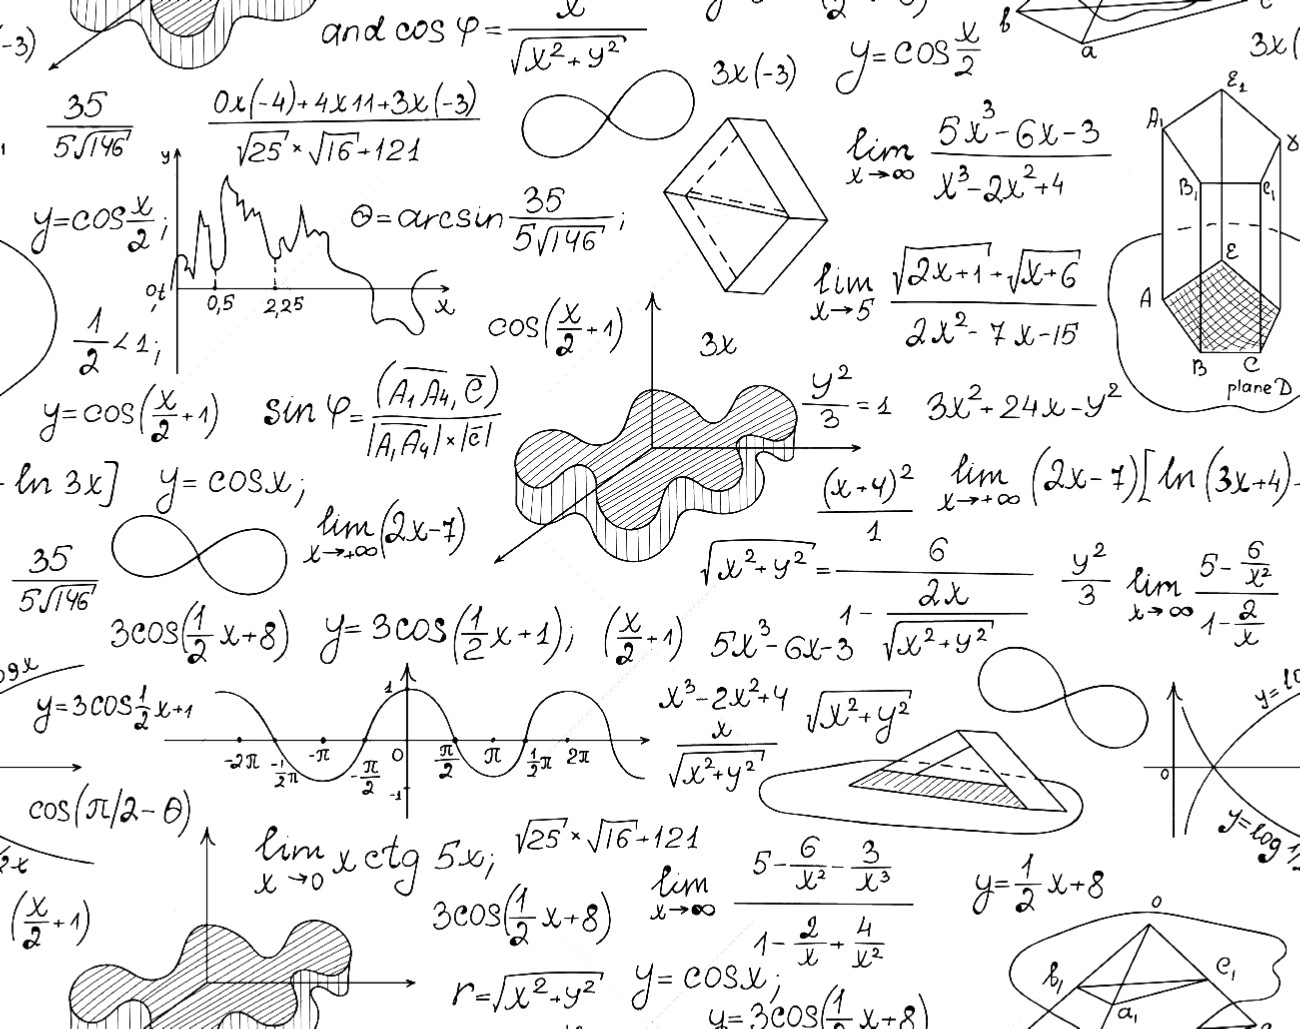 and cos φ = x/√(x²+y²)
3x(-3)
y=cos x/2
3x(
-3)
b
a
c
35/5√146
(0x(-4)+4x11+3x(-3))/(√25×√16+121)
lim x→∞ (5x³-6x-3)/(x³-2x²+4)
ε₁
A₁
B₁
C₁
y
y=cos x/2;
Θ=arcsin 35/5√146;
0,t
0,5
2,25
x
lim x→5 (√2x+1+√x+6)/(2x²-7x-15)
ε
A
B
C
plane D
1/2<1;
cos(x/2+1)
3x
y=cos(x/2+1)
sin φ=(A₁A₄, c̄)/|A₁A₄|×|c̄|
y²/3=1
3x²+24x-y²
- ln 3x]
y=cosx;
(x+4)²/1
lim x→+∞ (2x-7)[ln(3x+4)-
lim x→+∞ (2x-7)
35/5√146
√x²+y² = 6/(1-2x/√x²+y²)
y²/3
lim x→∞ (5-6/x²)/(1-2/x)
3cos(1/2 x+8)
y=3cos(1/2 x+1);
(x/2+1)
5x³-6x-3
y=3cos1/2 x+1
1
-2π
-1/2π
-π
-π/2
0
π/2
π
1/2π
2π
-1
x³-2x²+4
x/√x²+y²
√x²+y²
0
y=log 1/2
cos(π/2-Θ)
lim x→0 x ctg 5x;
√25×√16+121
lim x→∞ (5-6/x²-3/x³)/(1-2/x+4/x²)
y=1/2 x+8
(x/2+1)
3cos(1/2 x+8)
o
b₁
a₁
e₁
r=√x²+y²
y=cosx;
y=3cos(1/2 x+8)